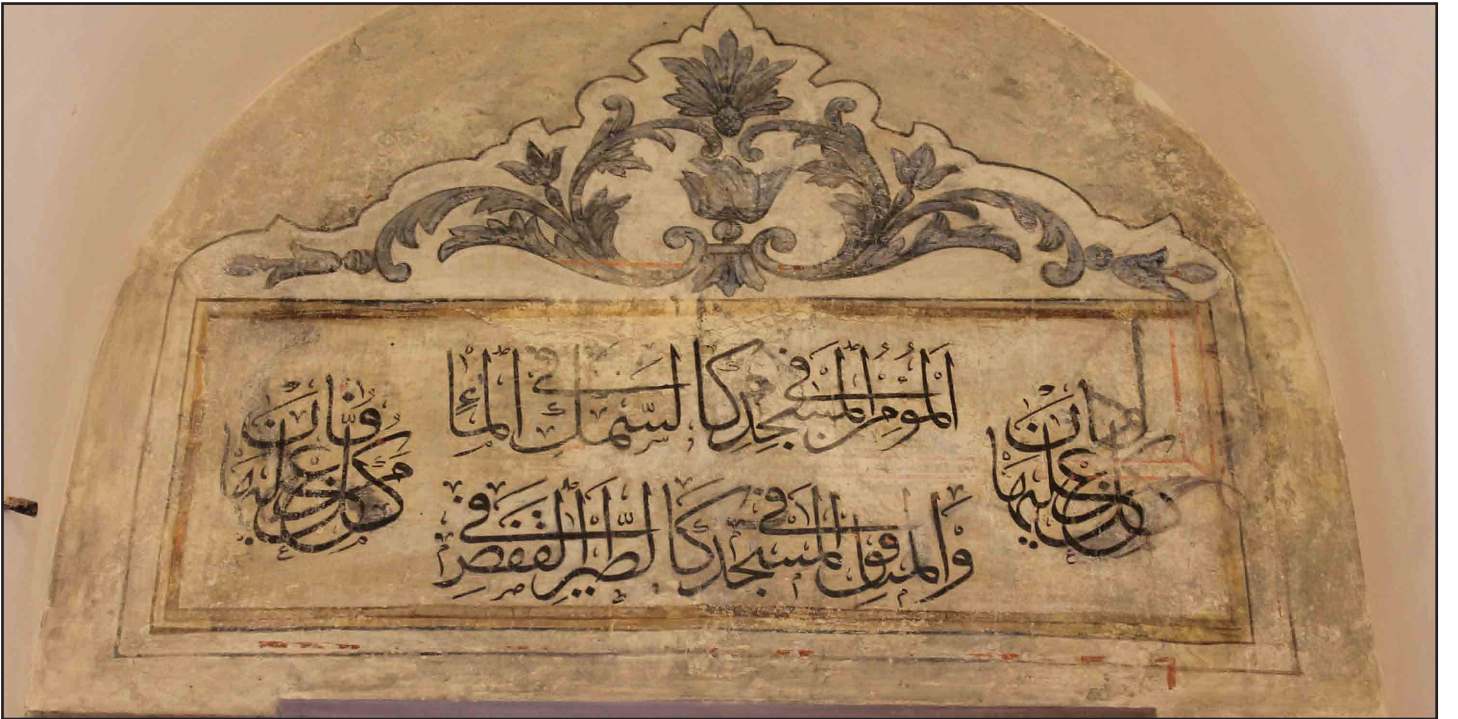 كل من عليها فان
اَلْمُؤْمِنُ فِي الْمَسْجِدِ كَالسَّمَكِ فِي الْمَاءِ
وَالْمُنَافِقُ فِي الْمَسْجِدِ كَالطَّيْرِ فِي الْقَفَصِ
كل من عليها فان